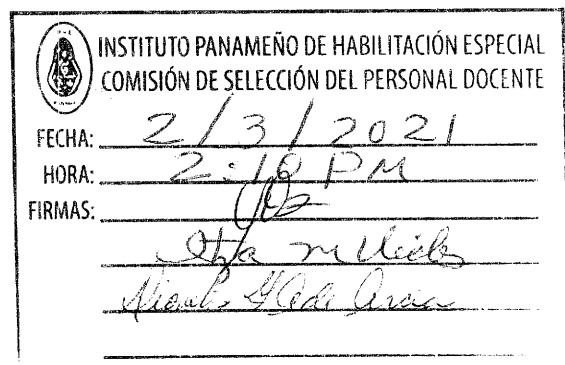 INSTITUTO PANAMEÑO DE HABILITACIÓN ESPECIAL
COMISIÓN DE SELECCIÓN DEL PERSONAL DOCENTE
FECHA: 2/3/2021
HORA: 2:10 PM
FIRMAS: